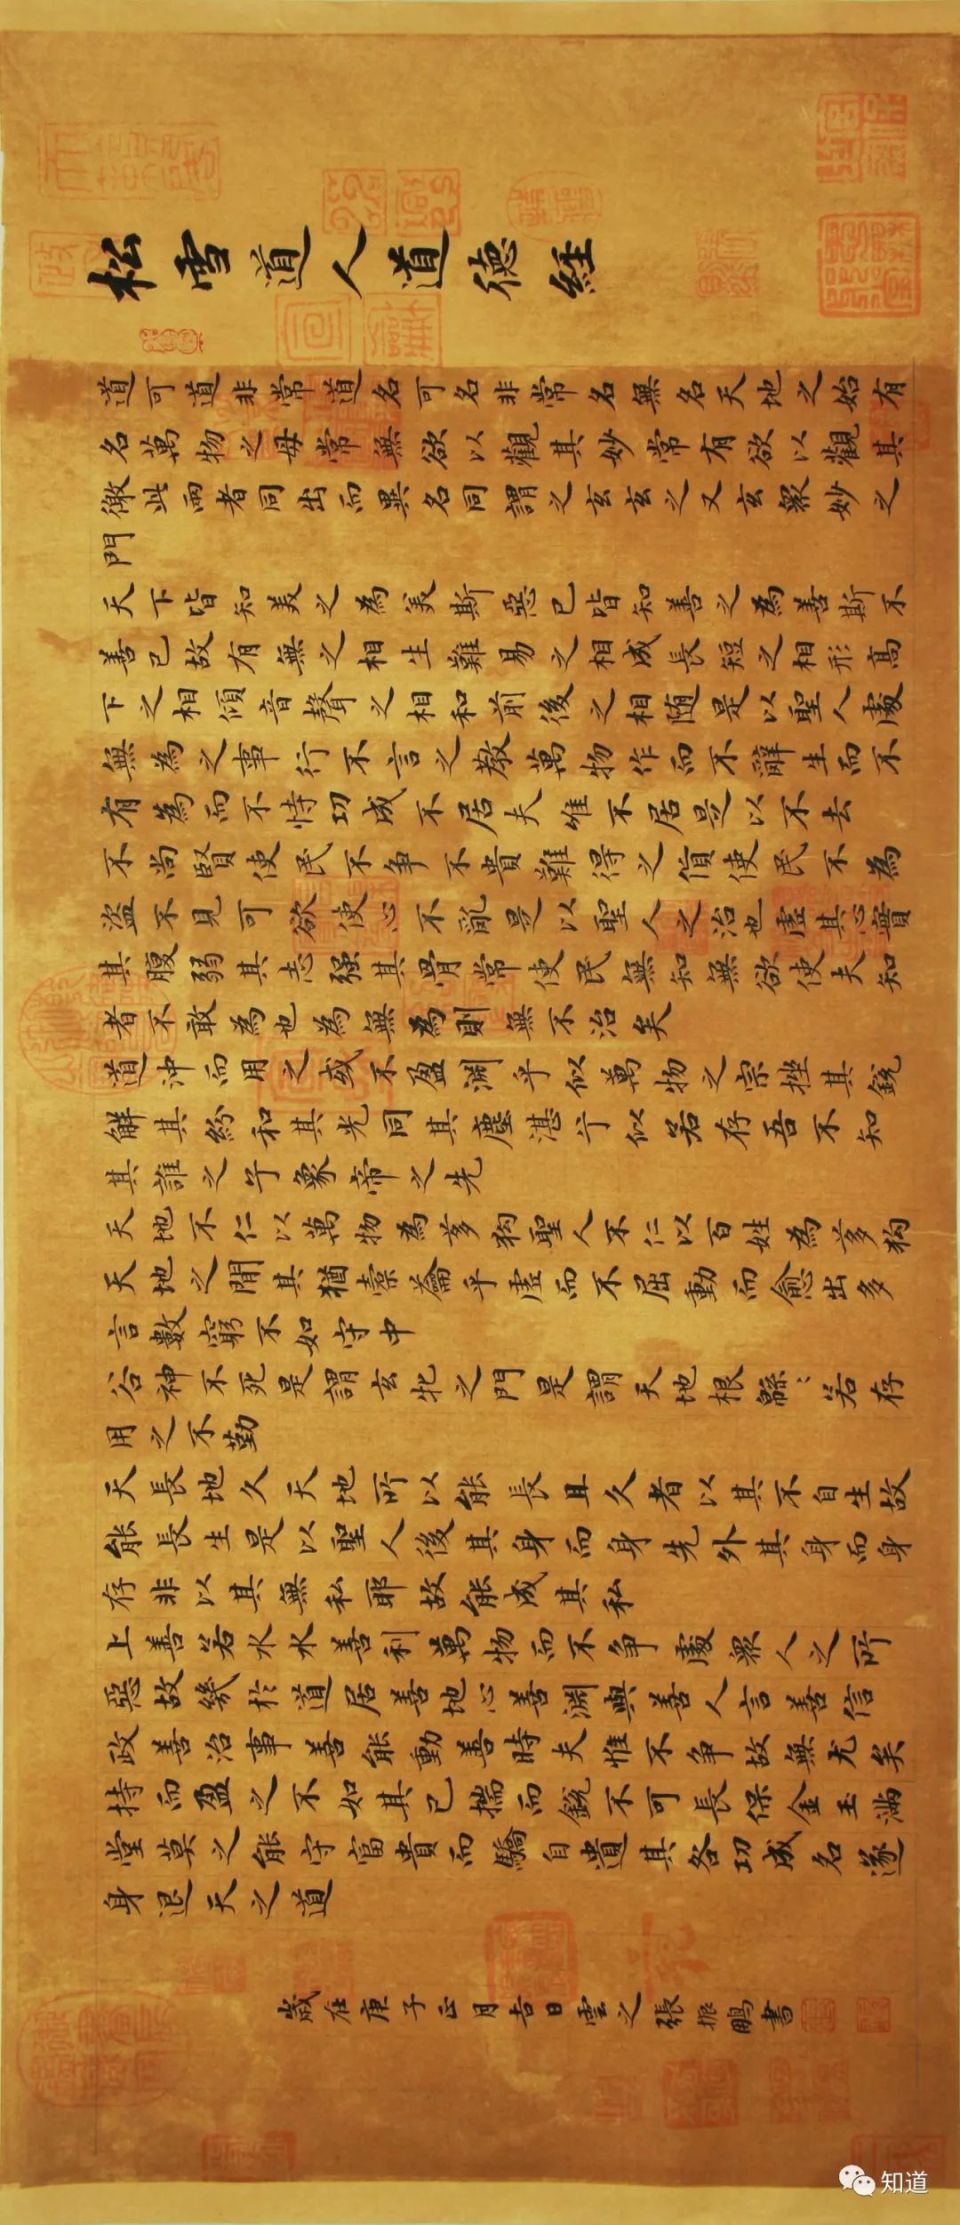 松雪道人道德經
道可道非常道名可名非常名無名天地之始有
名萬物之母常無欲以觀其妙常有欲以觀其
徼此兩者同出而異名同謂之玄玄之又玄眾妙之
門
天下皆知美之為美斯惡已皆知善之為善斯不
善已故有無之相生難易之相成長短之相形高
下之相傾音聲之相和前後之相随是以聖人處
無為之事行不言之教萬物作而不辭生而不
有為而不恃功成不居夫唯不居是以不去
不尚賢使民不争不貴難得之貨使民不為
盜不見可欲使心不亂是以聖人之治也虛其心實
其腹弱其志强其骨常使民無知無欲使夫知
者不敢為也為無為則無不治矣
道沖而用之或不盈淵乎似萬物之宗挫其銳
解其紛和其光同其塵湛兮似若存吾不知
其誰之子象帝之先
天地不仁以萬物為芻狗聖人不仁以百姓為芻狗
天地之間其猶橐籥乎虛而不屈動而愈出多
言數窮不如守中
谷神不死是謂玄牝之門是謂天地根緜〻若存
用之不勤
天長地久天地所以能長且久者以其不自生故
能長生是以聖人後其身而身先外其身而身
存非以其無私耶故能成其私
上善若水水善利萬物而不争處眾人之所
惡故幾於道居善地心善淵與善人言善信
政善治事善能動善時夫惟不争故無尤矣
持而盈之不如其已揣而銳不可長保金玉滿
堂莫之能守富貴而驕自遺其咎功成名遂
身退天之道
歲在庚子正月吉日雲之張振鵬書
知道